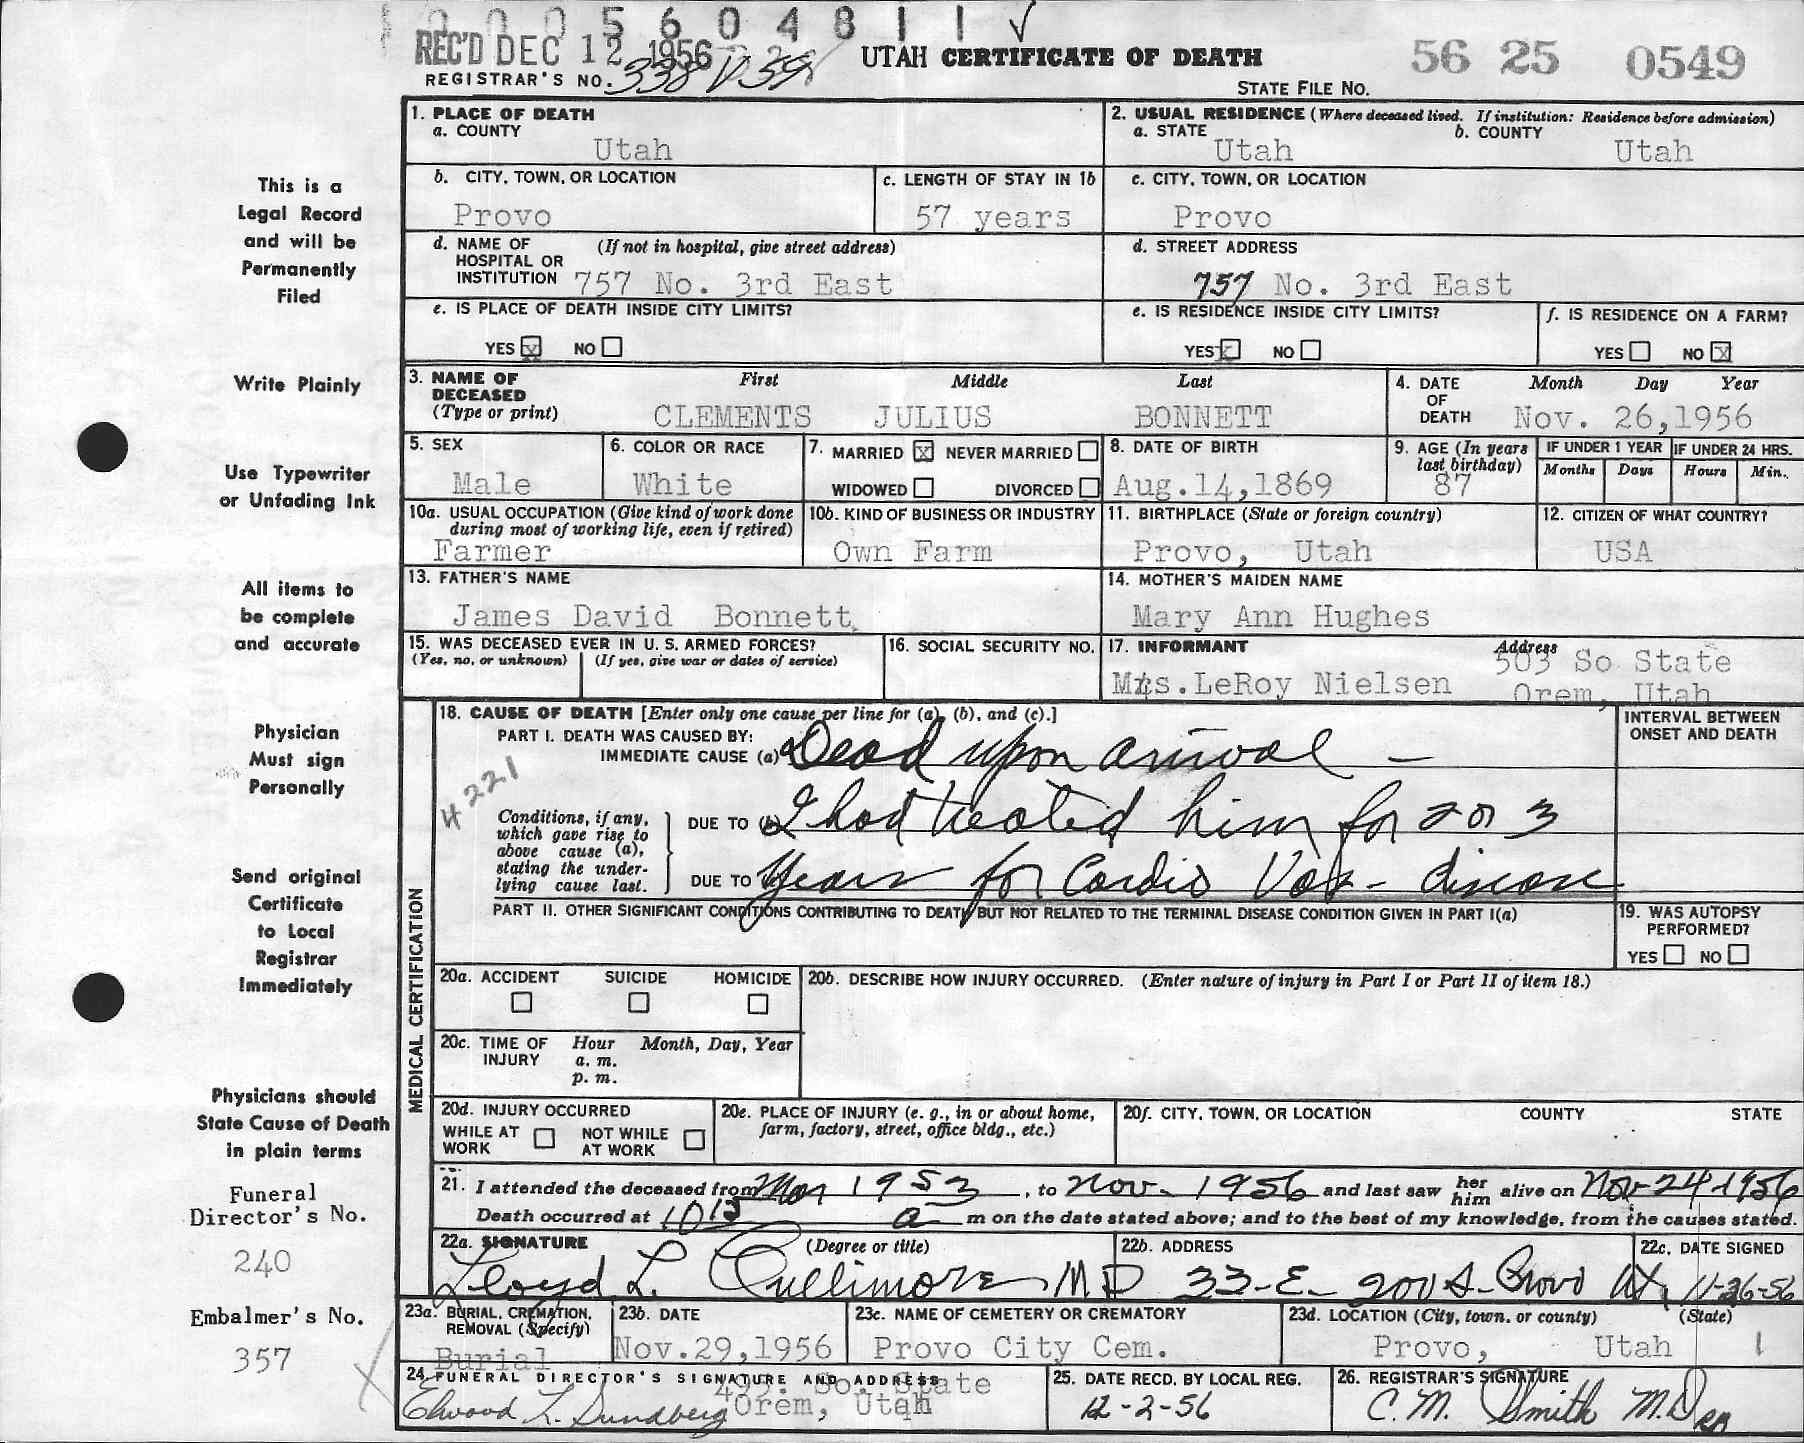 0 0 0 5 6 0 4 8 1 1 ✓
REC'D DEC 12 1956
UTAH CERTIFICATE OF DEATH
56 25 0549
REGISTRAR'S NO. 338
STATE FILE NO.
1. PLACE OF DEATH
a. COUNTY
Utah
2. USUAL RESIDENCE (Where deceased lived. If institution: Residence before admission)
a. STATE b. COUNTY
Utah Utah
b. CITY, TOWN, OR LOCATION
Provo
c. LENGTH OF STAY IN 1b
57 years
c. CITY, TOWN, OR LOCATION
Provo
d. NAME OF (If not in hospital, give street address)
HOSPITAL OR
INSTITUTION 757 No. 3rd East
d. STREET ADDRESS
757 No. 3rd East
e. IS PLACE OF DEATH INSIDE CITY LIMITS?
YES X NO
e. IS RESIDENCE INSIDE CITY LIMITS?
YES X NO
f. IS RESIDENCE ON A FARM?
YES NO X
3. NAME OF First Middle Last
DECEASED
(Type or print) CLEMENTS JULIUS BONNETT
4. DATE Month Day Year
OF
DEATH Nov. 26,1956
5. SEX
Male
6. COLOR OR RACE
White
7. MARRIED X NEVER MARRIED
WIDOWED DIVORCED
8. DATE OF BIRTH
Aug.14,1869
9. AGE (In years
last birthday)
87
IF UNDER 1 YEAR
Months Days
IF UNDER 24 HRS.
Hours Min.
10a. USUAL OCCUPATION (Give kind of work done
during most of working life, even if retired)
Farmer
10b. KIND OF BUSINESS OR INDUSTRY
Own Farm
11. BIRTHPLACE (State or foreign country)
Provo, Utah
12. CITIZEN OF WHAT COUNTRY?
USA
13. FATHER'S NAME
James David Bonnett
14. MOTHER'S MAIDEN NAME
Mary Ann Hughes
15. WAS DECEASED EVER IN U. S. ARMED FORCES?
(Yes, no, or unknown) (If yes, give war or dates of service)
16. SOCIAL SECURITY NO.
17. INFORMANT Address
503 So State
Mrs.LeRoy Nielsen
Orem, Utah
MEDICAL CERTIFICATION
18. CAUSE OF DEATH [Enter only one cause per line for (a), (b), and (c).]
PART I. DEATH WAS CAUSED BY:
IMMEDIATE CAUSE (a) Dead upon arrival –
INTERVAL BETWEEN
ONSET AND DEATH
4221
Conditions, if any,
which gave rise to
above cause (a),
stating the under-
lying cause last.
DUE TO (b) I had treated him for 2 or 3
DUE TO Years for Cardio Vas - disease
PART II. OTHER SIGNIFICANT CONDITIONS CONTRIBUTING TO DEATH BUT NOT RELATED TO THE TERMINAL DISEASE CONDITION GIVEN IN PART I(a)
19. WAS AUTOPSY
PERFORMED?
YES NO
20a. ACCIDENT SUICIDE HOMICIDE
20b. DESCRIBE HOW INJURY OCCURRED. (Enter nature of injury in Part I or Part II of item 18.)
20c. TIME OF Hour Month, Day, Year
INJURY a. m.
p. m.
20d. INJURY OCCURRED
WHILE AT NOT WHILE
WORK AT WORK
20e. PLACE OF INJURY (e. g., in or about home,
farm, factory, street, office bldg., etc.)
20f. CITY, TOWN, OR LOCATION COUNTY STATE
21. I attended the deceased from Mar 1953, to Nov. 1956 and last saw her him alive on Nov 24 1956
Death occurred at 10 15 a m on the date stated above; and to the best of my knowledge, from the causes stated.
22a. SIGNATURE (Degree or title)
Lloyd L. Cullimore MD
22b. ADDRESS
33-E 200 S- Provo Ut.
22c. DATE SIGNED
11-26-56
23a. BURIAL, CREMATION,
REMOVAL (Specify)
Burial
23b. DATE
Nov.29,1956
23c. NAME OF CEMETERY OR CREMATORY
Provo City Cem.
23d. LOCATION (City, town, or county) (State)
Provo, Utah 1
24. FUNERAL DIRECTOR'S SIGNATURE AND ADDRESS
So. State
Elwood L. Sundberg Orem, Utah
25. DATE RECD. BY LOCAL REG.
12-2-56
26. REGISTRAR'S SIGNATURE
C. M. Smith M.D.
This is a
Legal Record
and will be
Permanently
Filed
Write Plainly
Use Typewriter
or Unfading Ink
All items to
be complete
and accurate
Physician
Must sign
Personally
Send original
Certificate
to Local
Registrar
Immediately
Physicians should
State Cause of Death
in plain terms
Funeral
Director's No.
240
Embalmer's No.
357